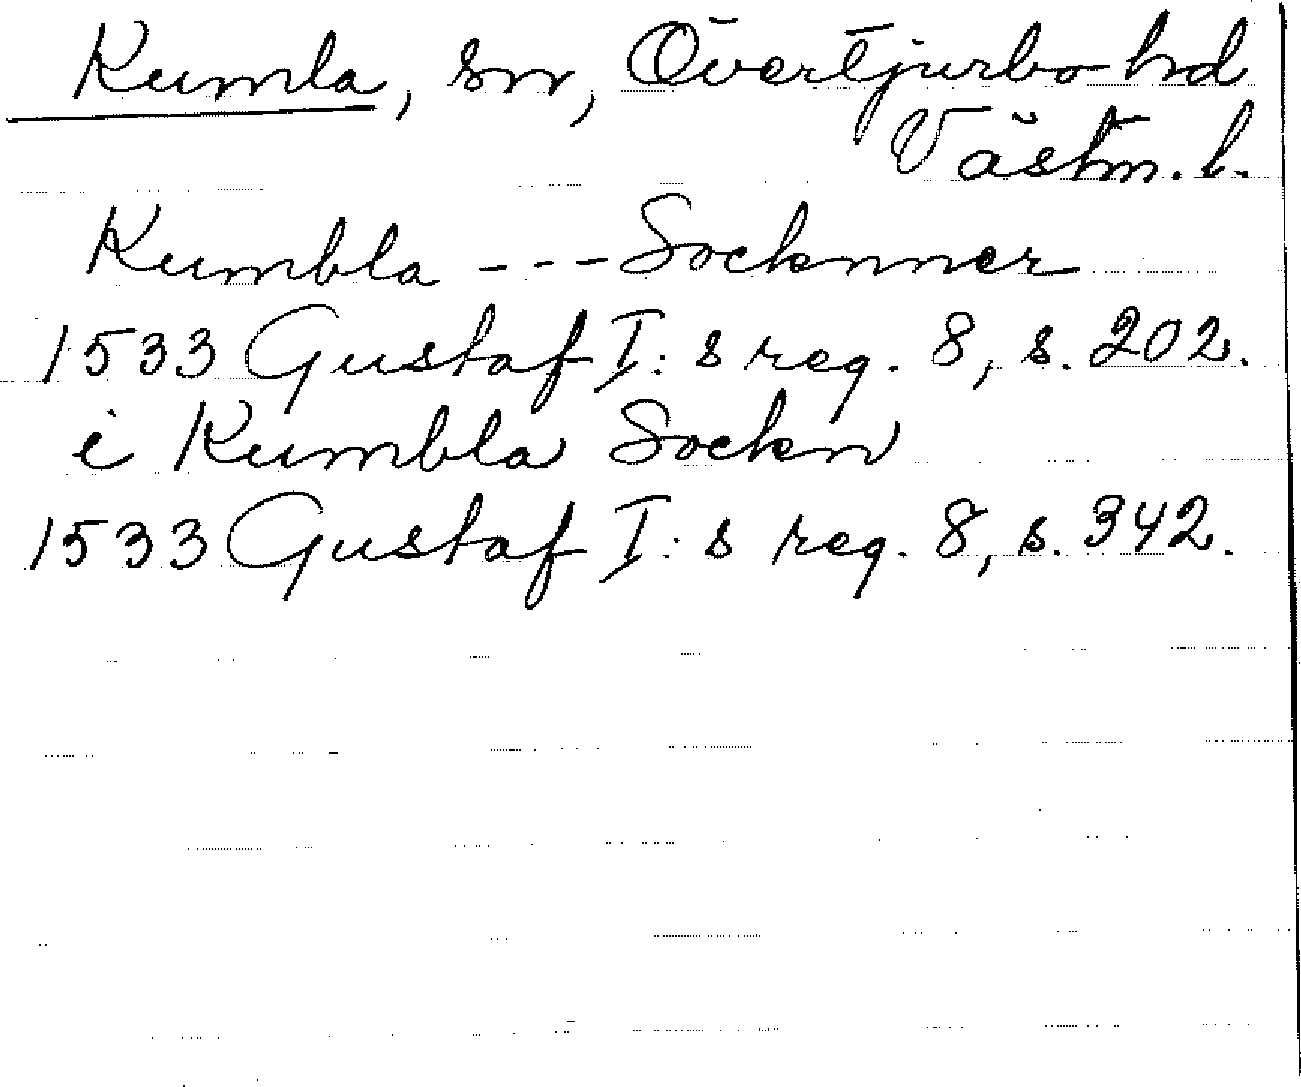 Kumla, sn, Övertjurbo hd
Västm. l.
Kumbla --- Socknner
1533 Gustaf I:s reg. 8, s. 202.
i Kumbla Sockn
1533 Gustaf I:s reg. 8, s. 342.